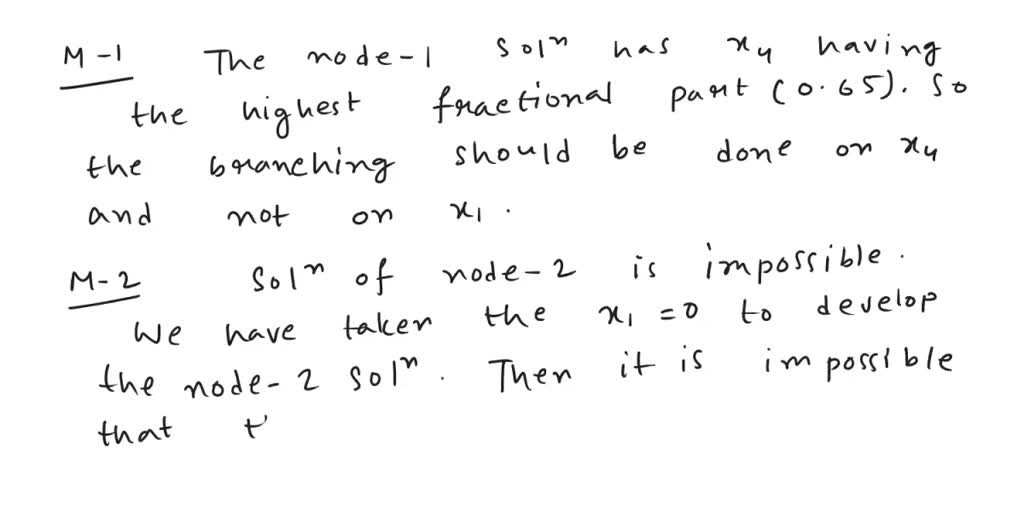 M-1 The node-1 solⁿ has x₄ having
the highest fractional part (0.65). So
the branching should be done on x₄
and not on x₁.
M-2 Solⁿ of node-2 is impossible.
We have taken the x₁ =0 to develop
the node-2 solⁿ. Then it is impossible
that